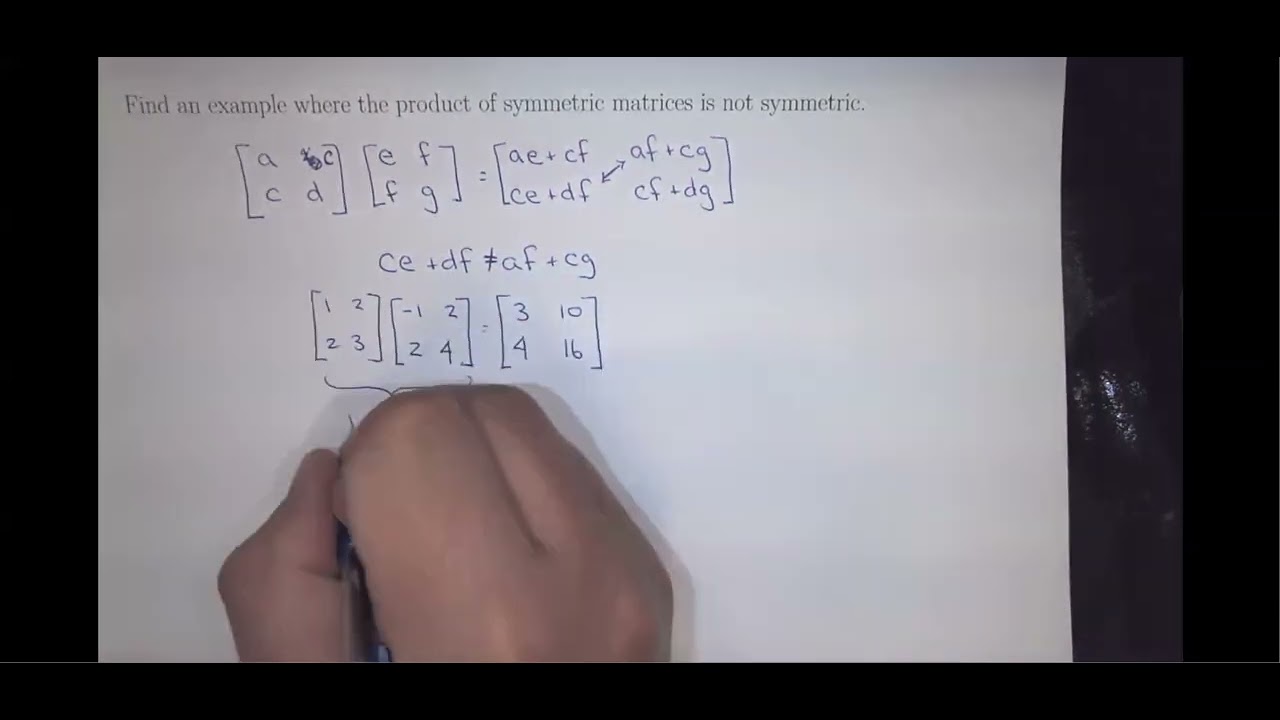 Find an example where the product of symmetric matrices is not symmetric.
[a c] [e f] = [ae + cf af + cg]
[c d] [f g] [ce + df cf + dg]
ce + df ≠ af + cg
[1 2] [-1 2] = [3 10]
[2 3] [2 4] [4 16]